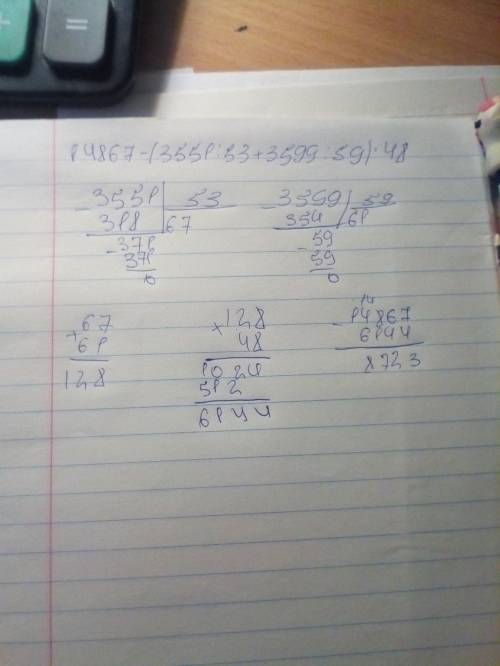 =
14867-(3551:53+3599:59)·48
-3551 | 53
318 | 67
-371
371
0
-3599 | 59
354 | 61
-59
59
0
+67
61
128
×128
48
1024
512
6144
14
-14867
6144
8723